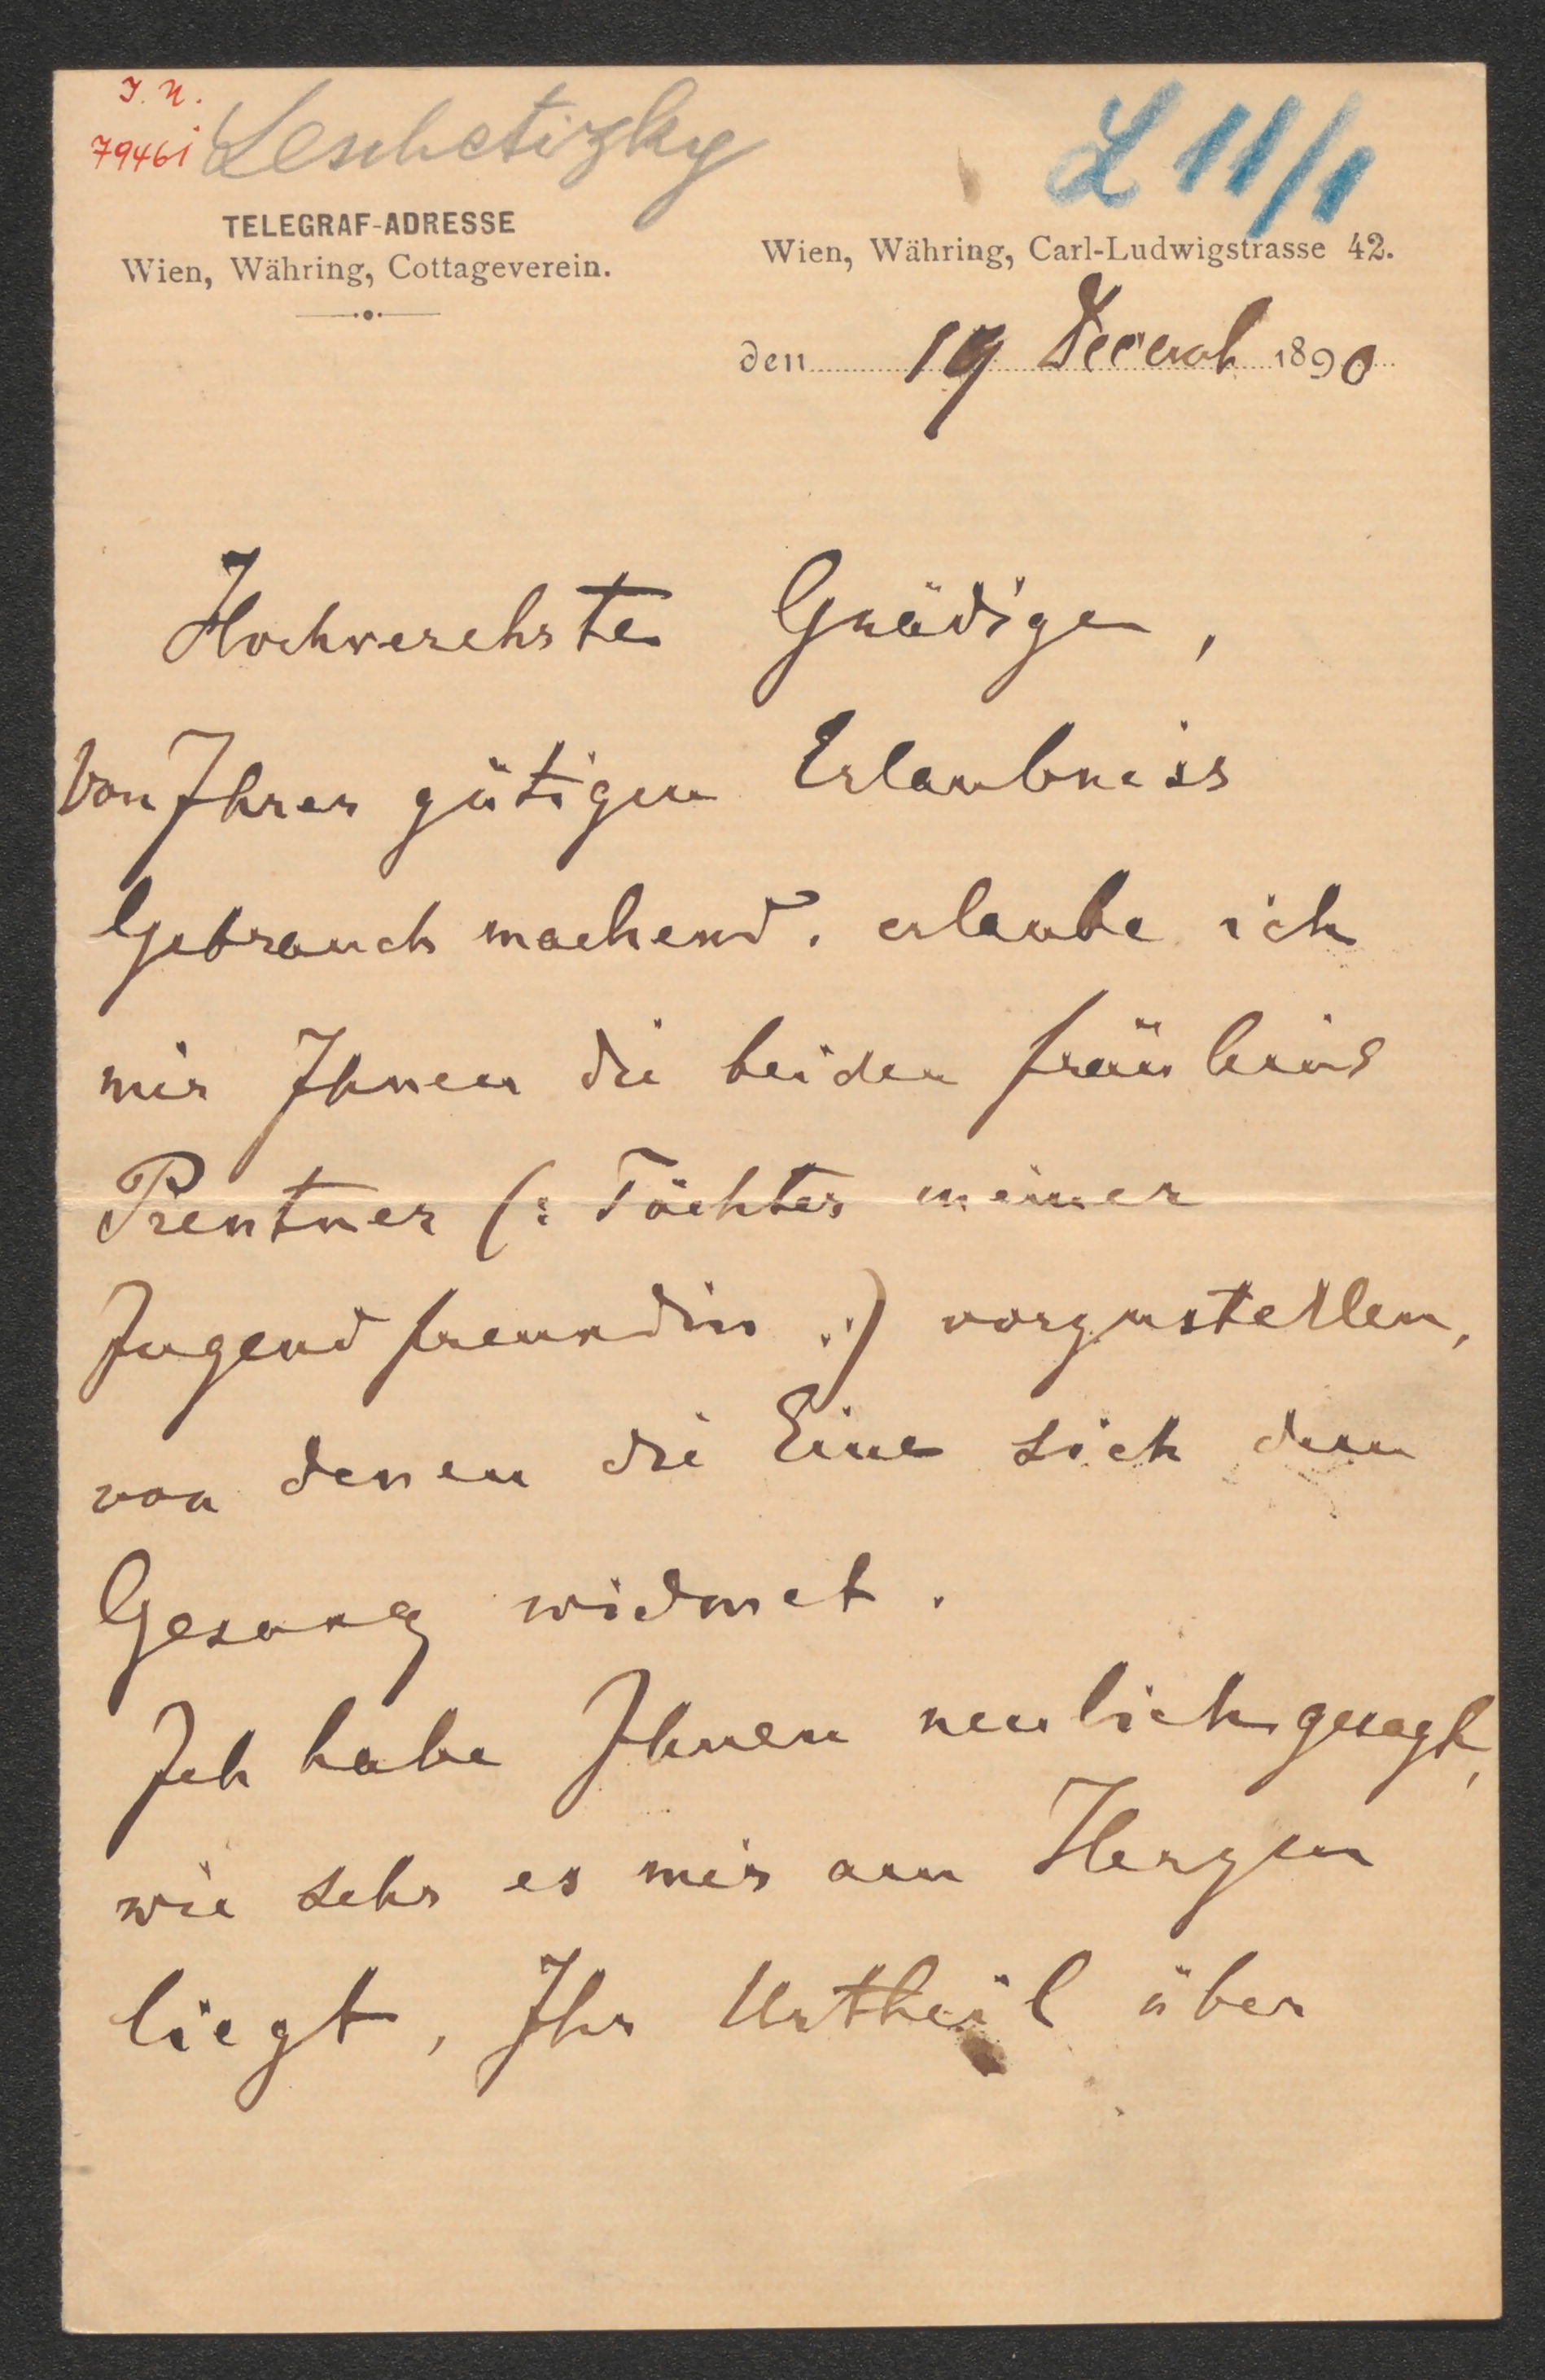 J. N.
79461
Leschetizky
L 11/1
TELEGRAF-ADRESSE
Wien, Währing, Cottageverein.
Wien, Währing, Carl-Ludwigstrasse 42.
den 19 Decemb 1890
Hochverehrte Gnädige,
Von Ihrer gütigen Erlaubniss
Gebrauch machend, erlaube ich
mir Ihnen die beiden Fräuleins
Prentner (: Töchter meiner
Jugendfreundin :) vorzustellen,
von denen die Eine sich dem
Gesang widmet.
Ich habe Ihnen neulich gesagt,
wie sehr es mir am Herzen
liegt, Ihr Urtheil über